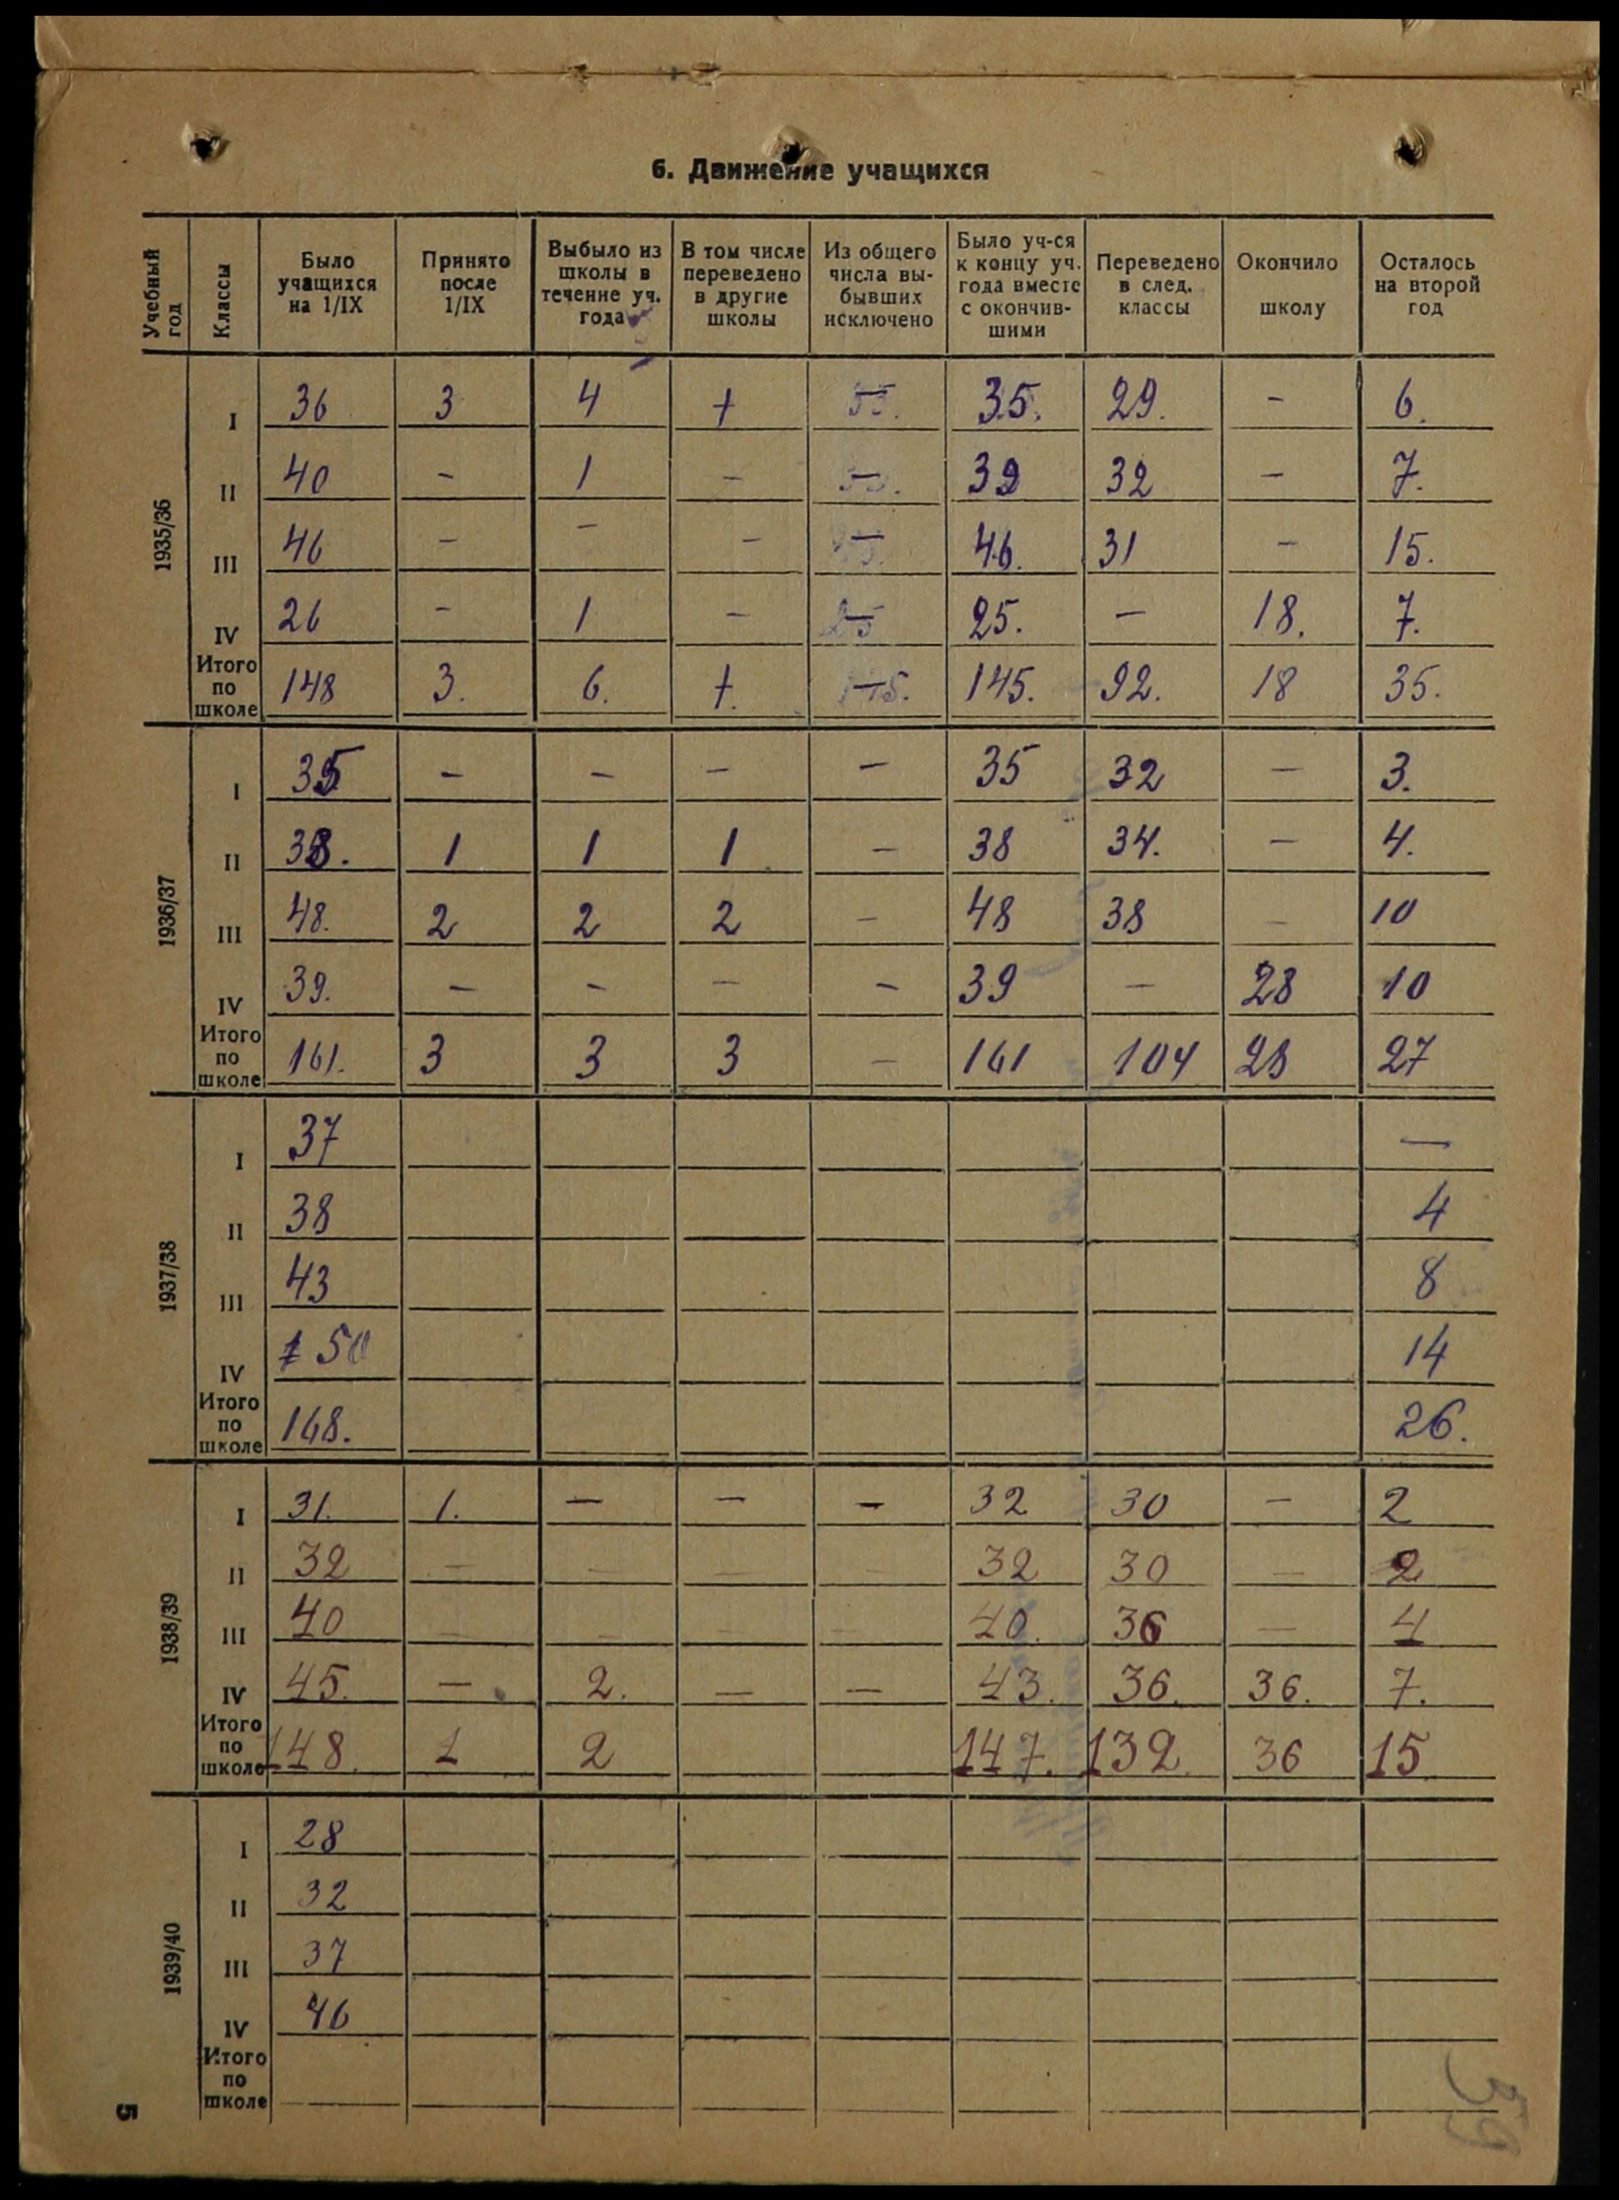 6. Движение учащихся
Учебный год | Классы | Было учащихся на 1/IX | Принято после 1/IX | Выбыло из школы в течение уч. года | В том числе переведено в другие школы | Из общего числа выбывших исключено | Было уч-ся к концу уч. года вместе с окончившими | Переведено в след. классы | Окончило школу | Осталось на второй год
1935/36
I | 36 | 3 | 4 | + | — | 35. | 29. | - | 6.
II | 40 | - | 1 | - | — | 39 | 32 | - | 7.
III | 46 | - | - | - | — | 46. | 31 | - | 15.
IV | 26 | - | 1 | - | — | 25. | - | 18. | 7.
Итого по школе | 148 | 3. | 6. | +. | — | 145. | 92. | 18 | 35.
1936/37
I | 35 | - | - | - | - | 35 | 32 | - | 3.
II | 38. | 1 | 1 | 1 | - | 38 | 34. | - | 4.
III | 48. | 2 | 2 | 2 | - | 48 | 38 | - | 10
IV | 39. | - | - | - | - | 39 | - | 28 | 10
Итого по школе | 161. | 3 | 3 | 3 | - | 161 | 104 | 28 | 27
1937/38
I | 37 | —
II | 38 | 4
III | 43 | 8
IV | 50 | 14
Итого по школе | 168. | 26.
1938/39
I | 31. | 1. | - | - | - | 32 | 30 | - | 2
II | 32 | - | - | - | - | 32 | 30 | - | 2
III | 40 | - | - | - | - | 40. | 36 | - | 4
IV | 45. | - | 2. | - | - | 43. | 36. | 36. | 7.
Итого по школе | 148. | 1 | 2 | 147. | 132. | 36 | 15
1939/40
I | 28
II | 32
III | 37
IV | 46
Итого по школе
5
59